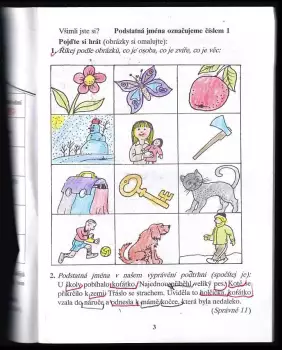 Všimli jste si? Podstatná jména označujeme číslem 1
Pojďte si hrát (obrázky si omalujte):
1. Říkej podle obrázků, co je osoba, co je zvíře, co je věc:
2. Podstatná jména v našem vyprávění podtrhni (spočítej je):
U školy pobíhalo koťátko. Najednou přiběhl veliký pes. Kotě se
přikrčilo k zemi. Třáslo se strachem. Uviděla to holčička, koťátko
vzala do náruče a odnesla k mámě kočce, která byla nedaleko.
(Správně 11)
3